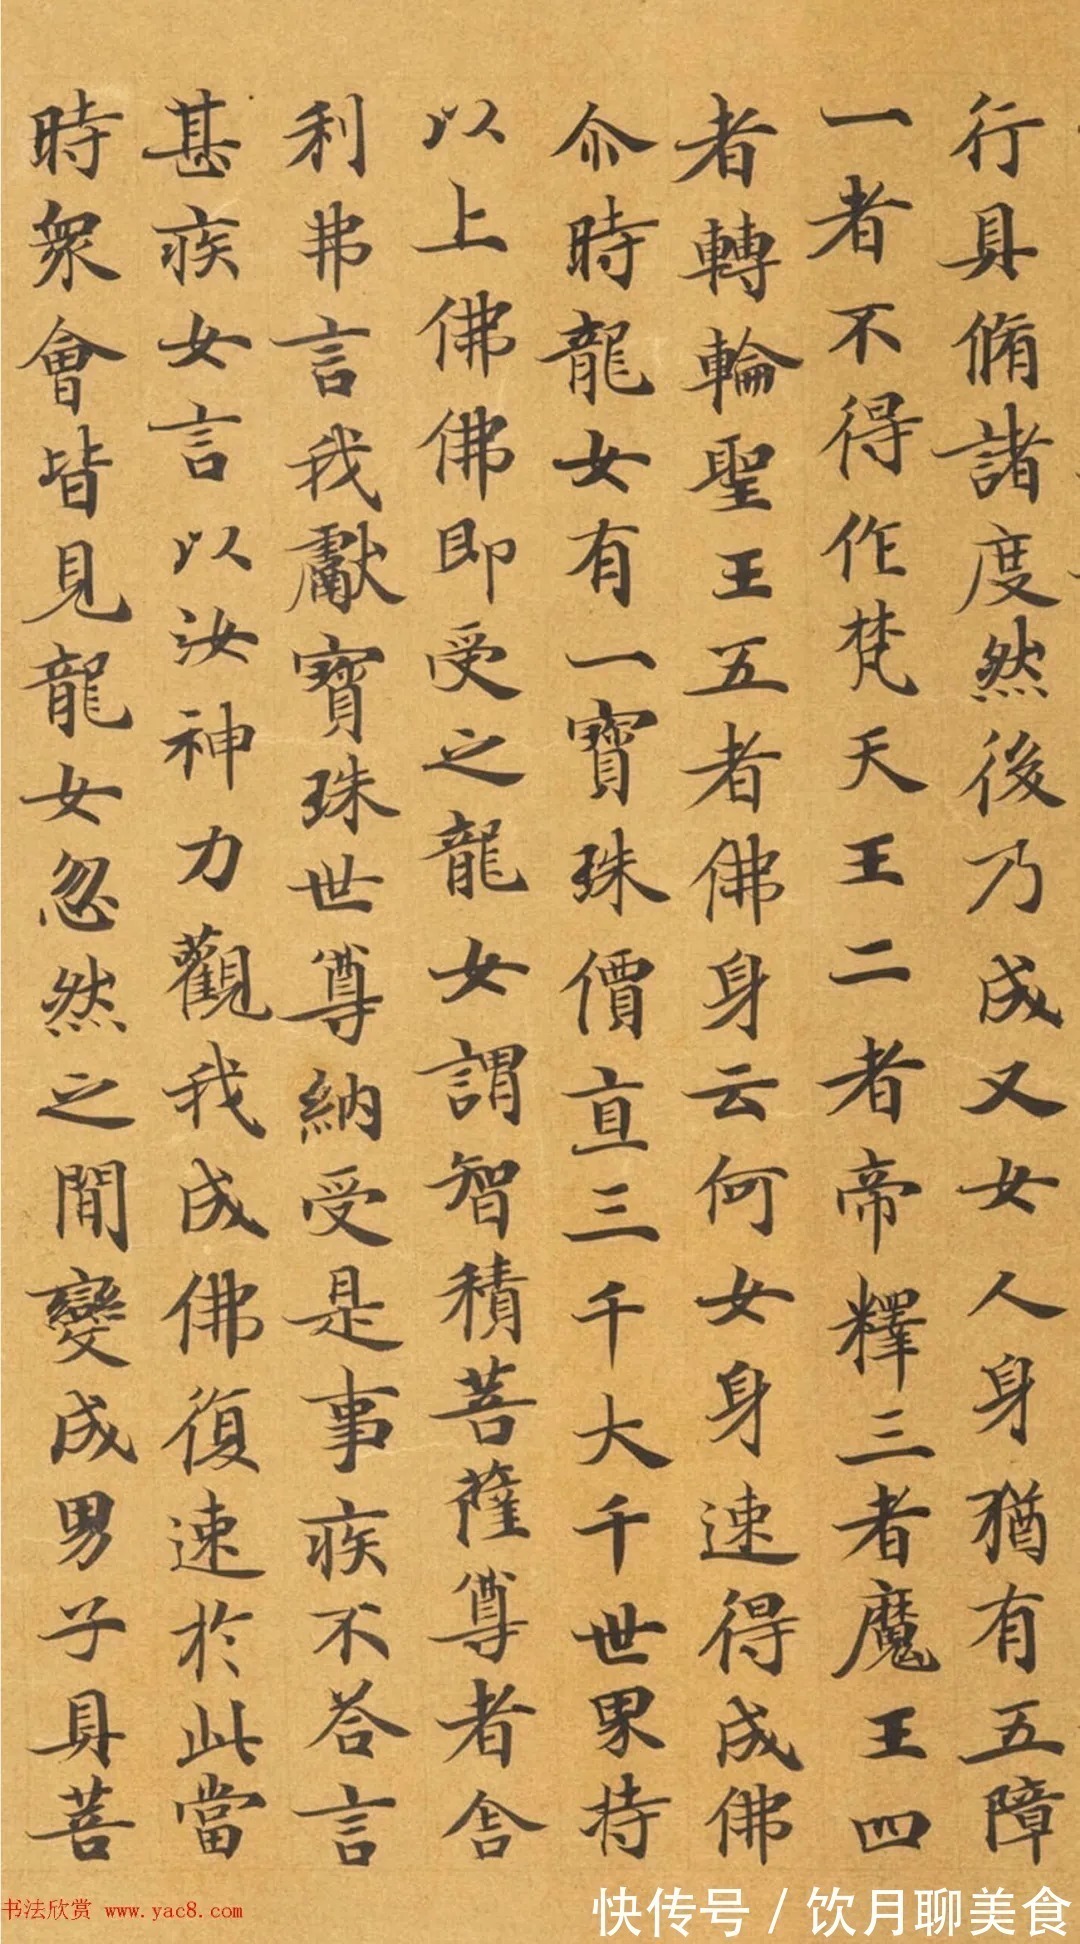 行具脩諸度然後乃成又女人身猶有五障
一者不得作梵天王二者帝釋三者魔王四
者轉輪聖王五者佛身云何女身速得成佛
尒時龍女有一寶珠價直三千大千世界持
以上佛佛即受之龍女謂智積菩薩尊者舍
利弗言我獻寶珠世尊納受是事疾不荅言
甚疾女言以汝神力觀我成佛復速於此當
時眾會皆見龍女忽然之間變成男子具菩
书法欣赏 www.yac8.com
快传号 / 饮月聊美食